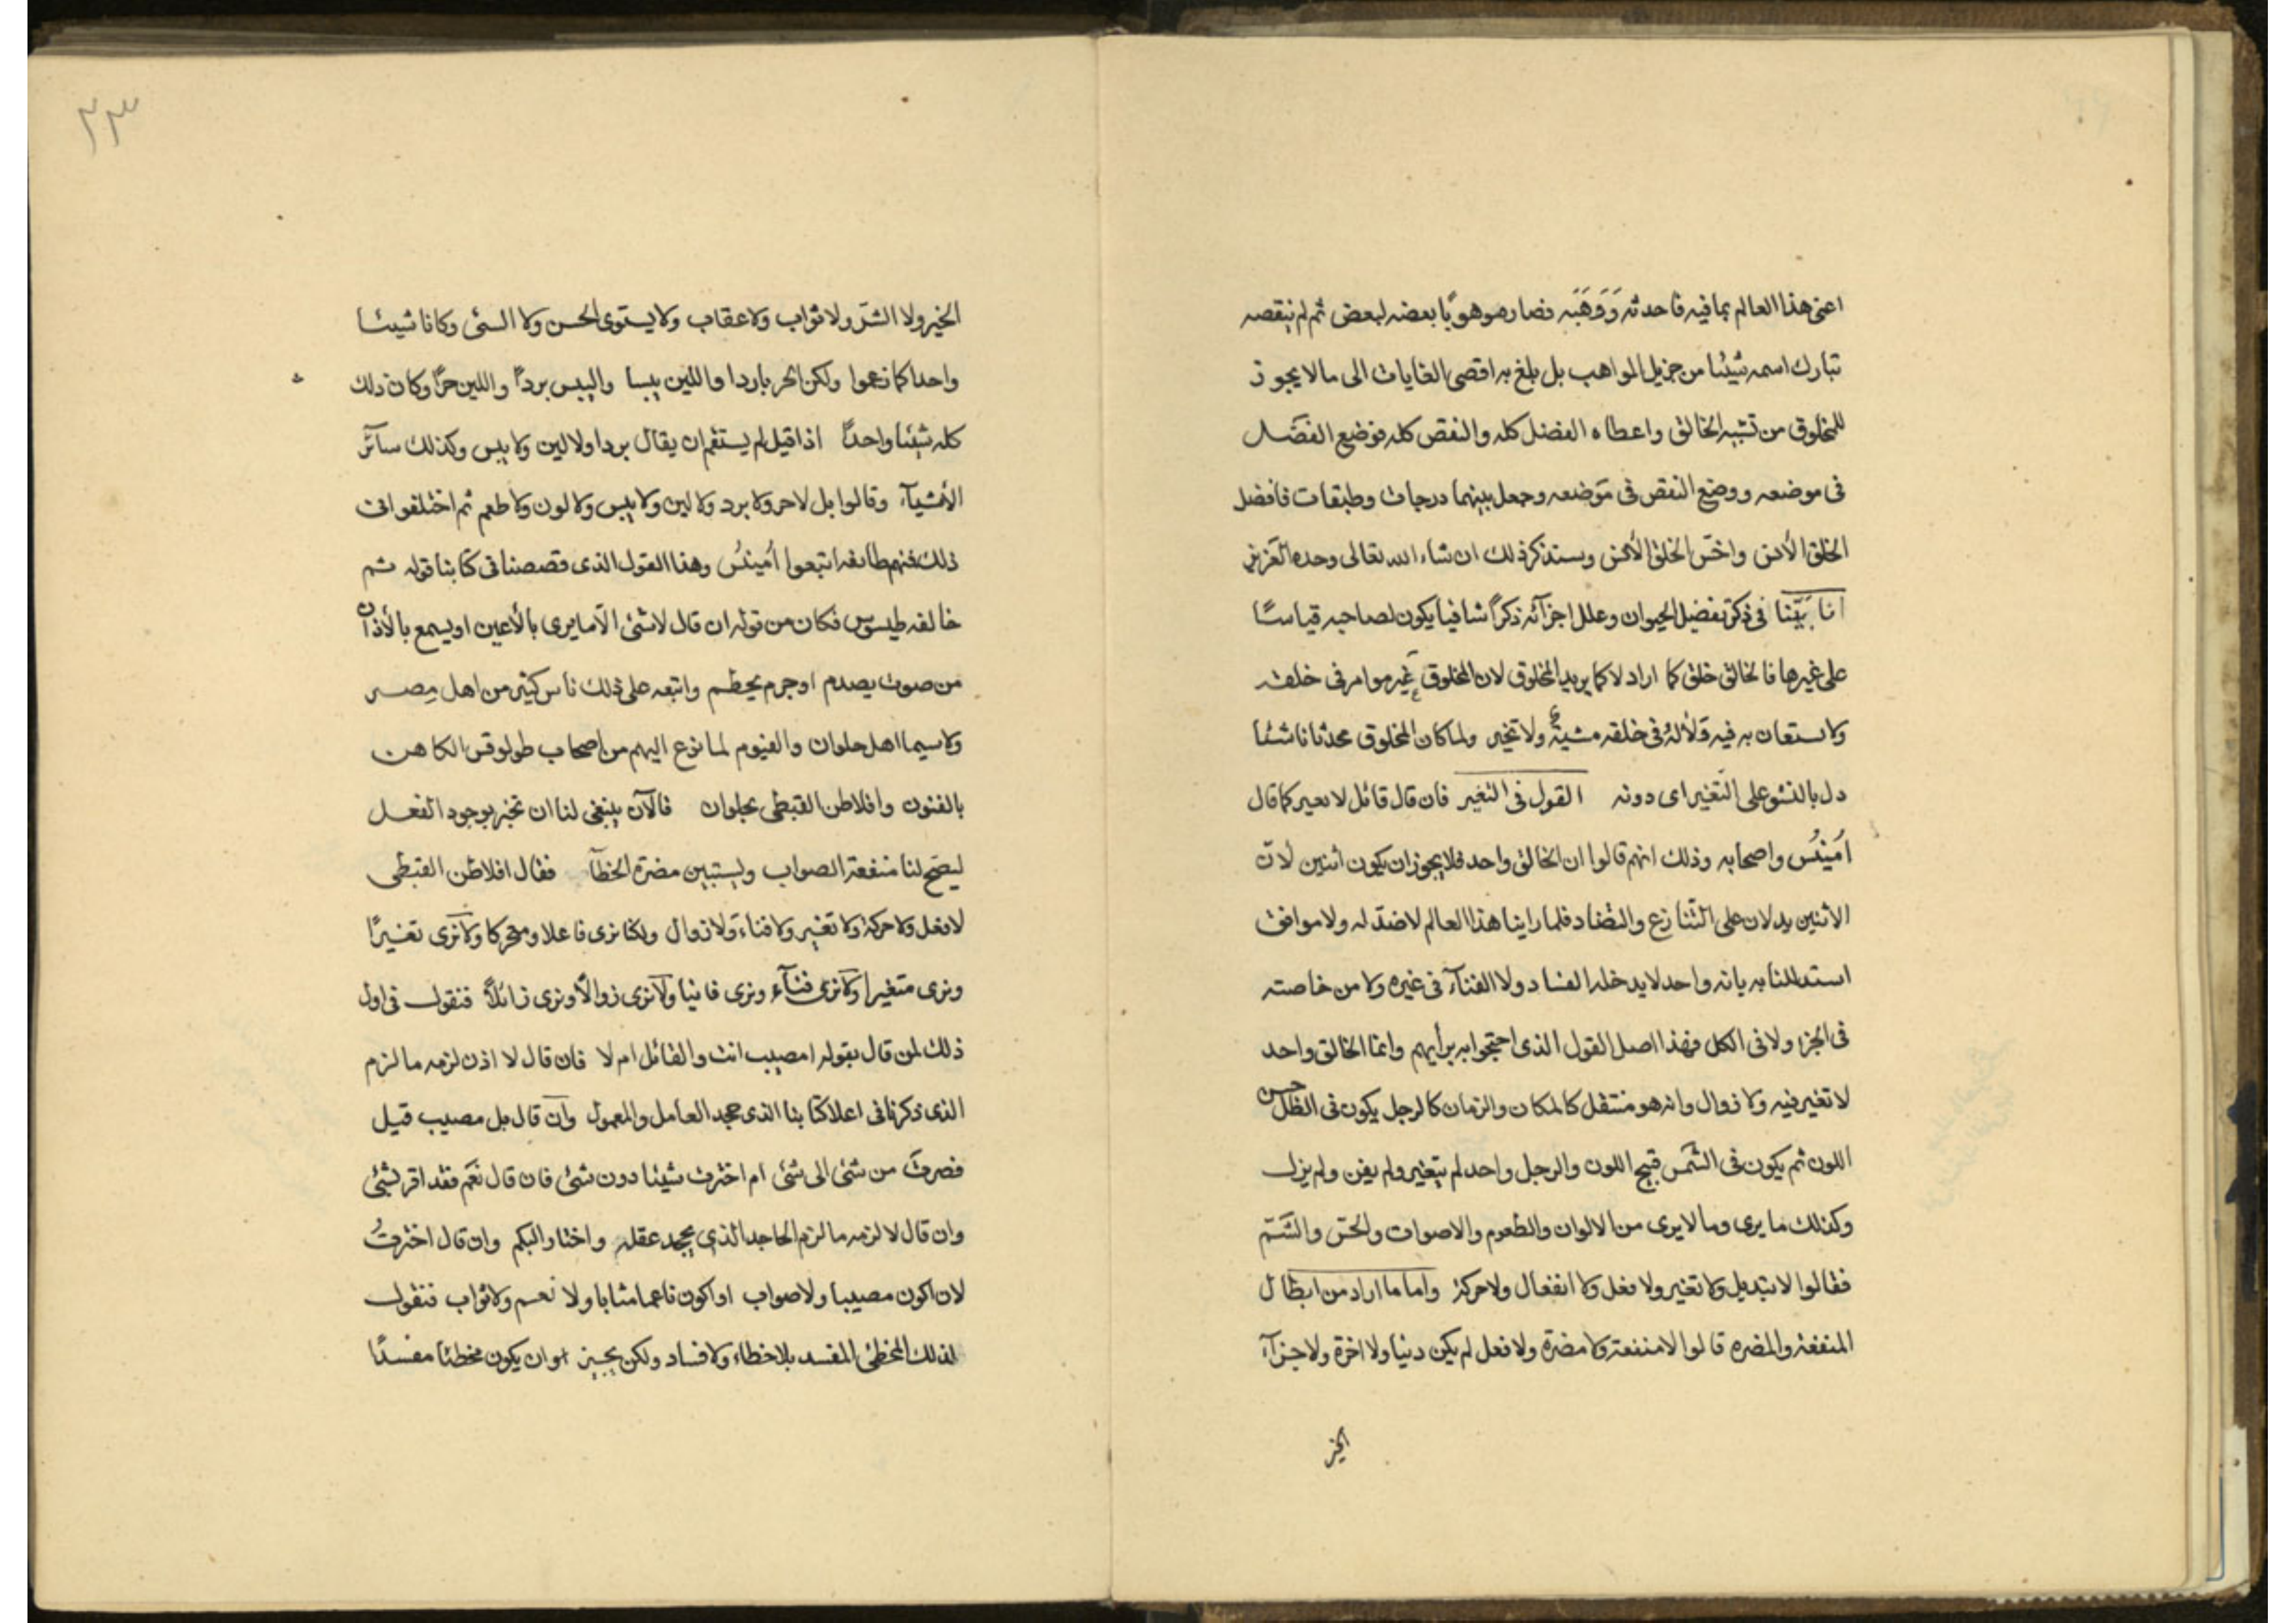 اعنى هذا العالم بما فيه فاحدثه وَوَهَبَه فصار موهوبًا بعضه لبعض ثم لم ينقصه
تبارك اسمه شيئا من جزيل المواهب بل بلغ به اقصى الغايات الى ما لا يجوز
للمخلوق من تشبه الخالق واعطاه الفضل كله والنقص كله فوضع الفضل
فى موضعه ووضع النقص فى موضعه وجعل بينهما درجات وطبقات فافضل
الخلق الأنس واخس الخلق وسنذكر ذلك ان شاء الله تعالى وحده العزيز
انا بَيَّنا فى ذكر تفضيل الحيوان وعلل اجزآئه ذكرًا شافيا يكون لصاحبه قياسًا
على غيرها فالخالق خلق كما اراد لا كما يريد المخلوق لان المخلوق غير موامر فى خلقه
ولا ستعان به فيه فلا له فى خلقه مشية ولا تخير ولما كان المخلوق محدثا ناشئا
دل بالنشو على التغير اى دونه القول فى التغير فان قال قائل لا تغير كما قال
اَمينُس واصحابه وذلك انهم قالوا ان الخالق واحد فلا يجوز ان يكون اثنين لان
الاثنين يدلان على التنازع والتضاد فلما راينا هذا العالم لا ضدّ له ولا موافق
استدللنا به بانه واحد لا يدخله الفساد ولا الفنآء فى غيره ولا من خاصته
فى الجزء ولا فى الكل فهذا اصل القول الذى احتجوا به برأيهم وانما الخالق واحد
لا تغير فيه ولا زوال وانه هو منتقل كالمكان والزمان كالرجل يكون فى الظل حسن
اللون ثم يكون فى الشمس قبيح اللون والرجل واحد لم يتغير ولم يفن ولم يزل
وكذلك ما يرى وما لا يرى من الالوان والطعوم والاصوات والحسّ والشمّ
فقالوا لا تبديل ولا تغير ولا فعل ولا انفعال ولا حركة واما ما اراد من ابطال
المنفعة والمضره قالوا لا منفعة ولا مضرة ولا فعل لم يكن دنيا ولا اخرة ولا جزآء
الخير
٢٣
الخير ولا الشرّ ولا ثواب ولا عقاب ولا يستوى الحسن ولا السئ وكانا شيئا
واحدا كما زعموا ولكن الحر باردا واللين يبسا واليبس بردًا واللين حرًا وكان ذلك
كله شيئا واحدًا اذا قيل لم يستقم ان يقال بردا ولا لين ولا يبس وكذلك سآئر
الأشيآء وقالوا بل لا حر ولا برد ولا لين ولا يبس ولا لون ولا طعم ثم اختلفوا فى
ذلك فمنهم طائفه اتبعوا اَمينُس وهذا القول الذى قصصنا فى كتابنا قوله ثم
خالفه طيسوس فكان من قوله ان قال لا شئ الّا ما يرى بالأعين او يسمع بالأذان
من صوت يصدم او جرم يحطم واتبعه على ذلك ناس كثير من اهل مِصر
ولا سيما اهل حلوان والفيوم لما نزع اليهم من اصحاب طولوقس الكاهن
بالفنون وافلاطن القبطى بحلوان فالآن ينبغى لنا ان نخبر بوجود الفعل
ليصح لنا منفعة الصواب وليستبين مضرة الخطآء فقال افلاطن القبطى
لا فعل ولا حركة ولا تغير ولا فناء ولا زوال ولكنا نرى فاعلا ومتحركا ولا نرى تغيرًا
ونرى متغيرا ولا نرى فنآء ونرى فانيا ولا نرى زوالًا ونرى زائلًا فنقول فى اول
ذلك لمن قال بقوله امصيب انت والقائل ام لا فان قال لا اذن لزمه ما لزم
الذى ذكرنا فى اعلا كتابنا الذى جحد العامل والمعمول وان قال بل مصيب قيل
فصرتَ من شئ الى شئ ام اخترت شيئا دون شئ فان قال نَعَم فقد اقر بشئ
وان قال لا لزمه ما لزم الجاحد الذى يجحد عقله واختار البكم وان قال اخترتُ
لان اكون مصيبا ولا صواب او اكون ناعما مثابا ولا نعم ولا ثواب فنقول
لذلك المخطئ المفسد بلا خطاء ولا فساد ولكن يجيز ان يكون مخطئا مفسدًا